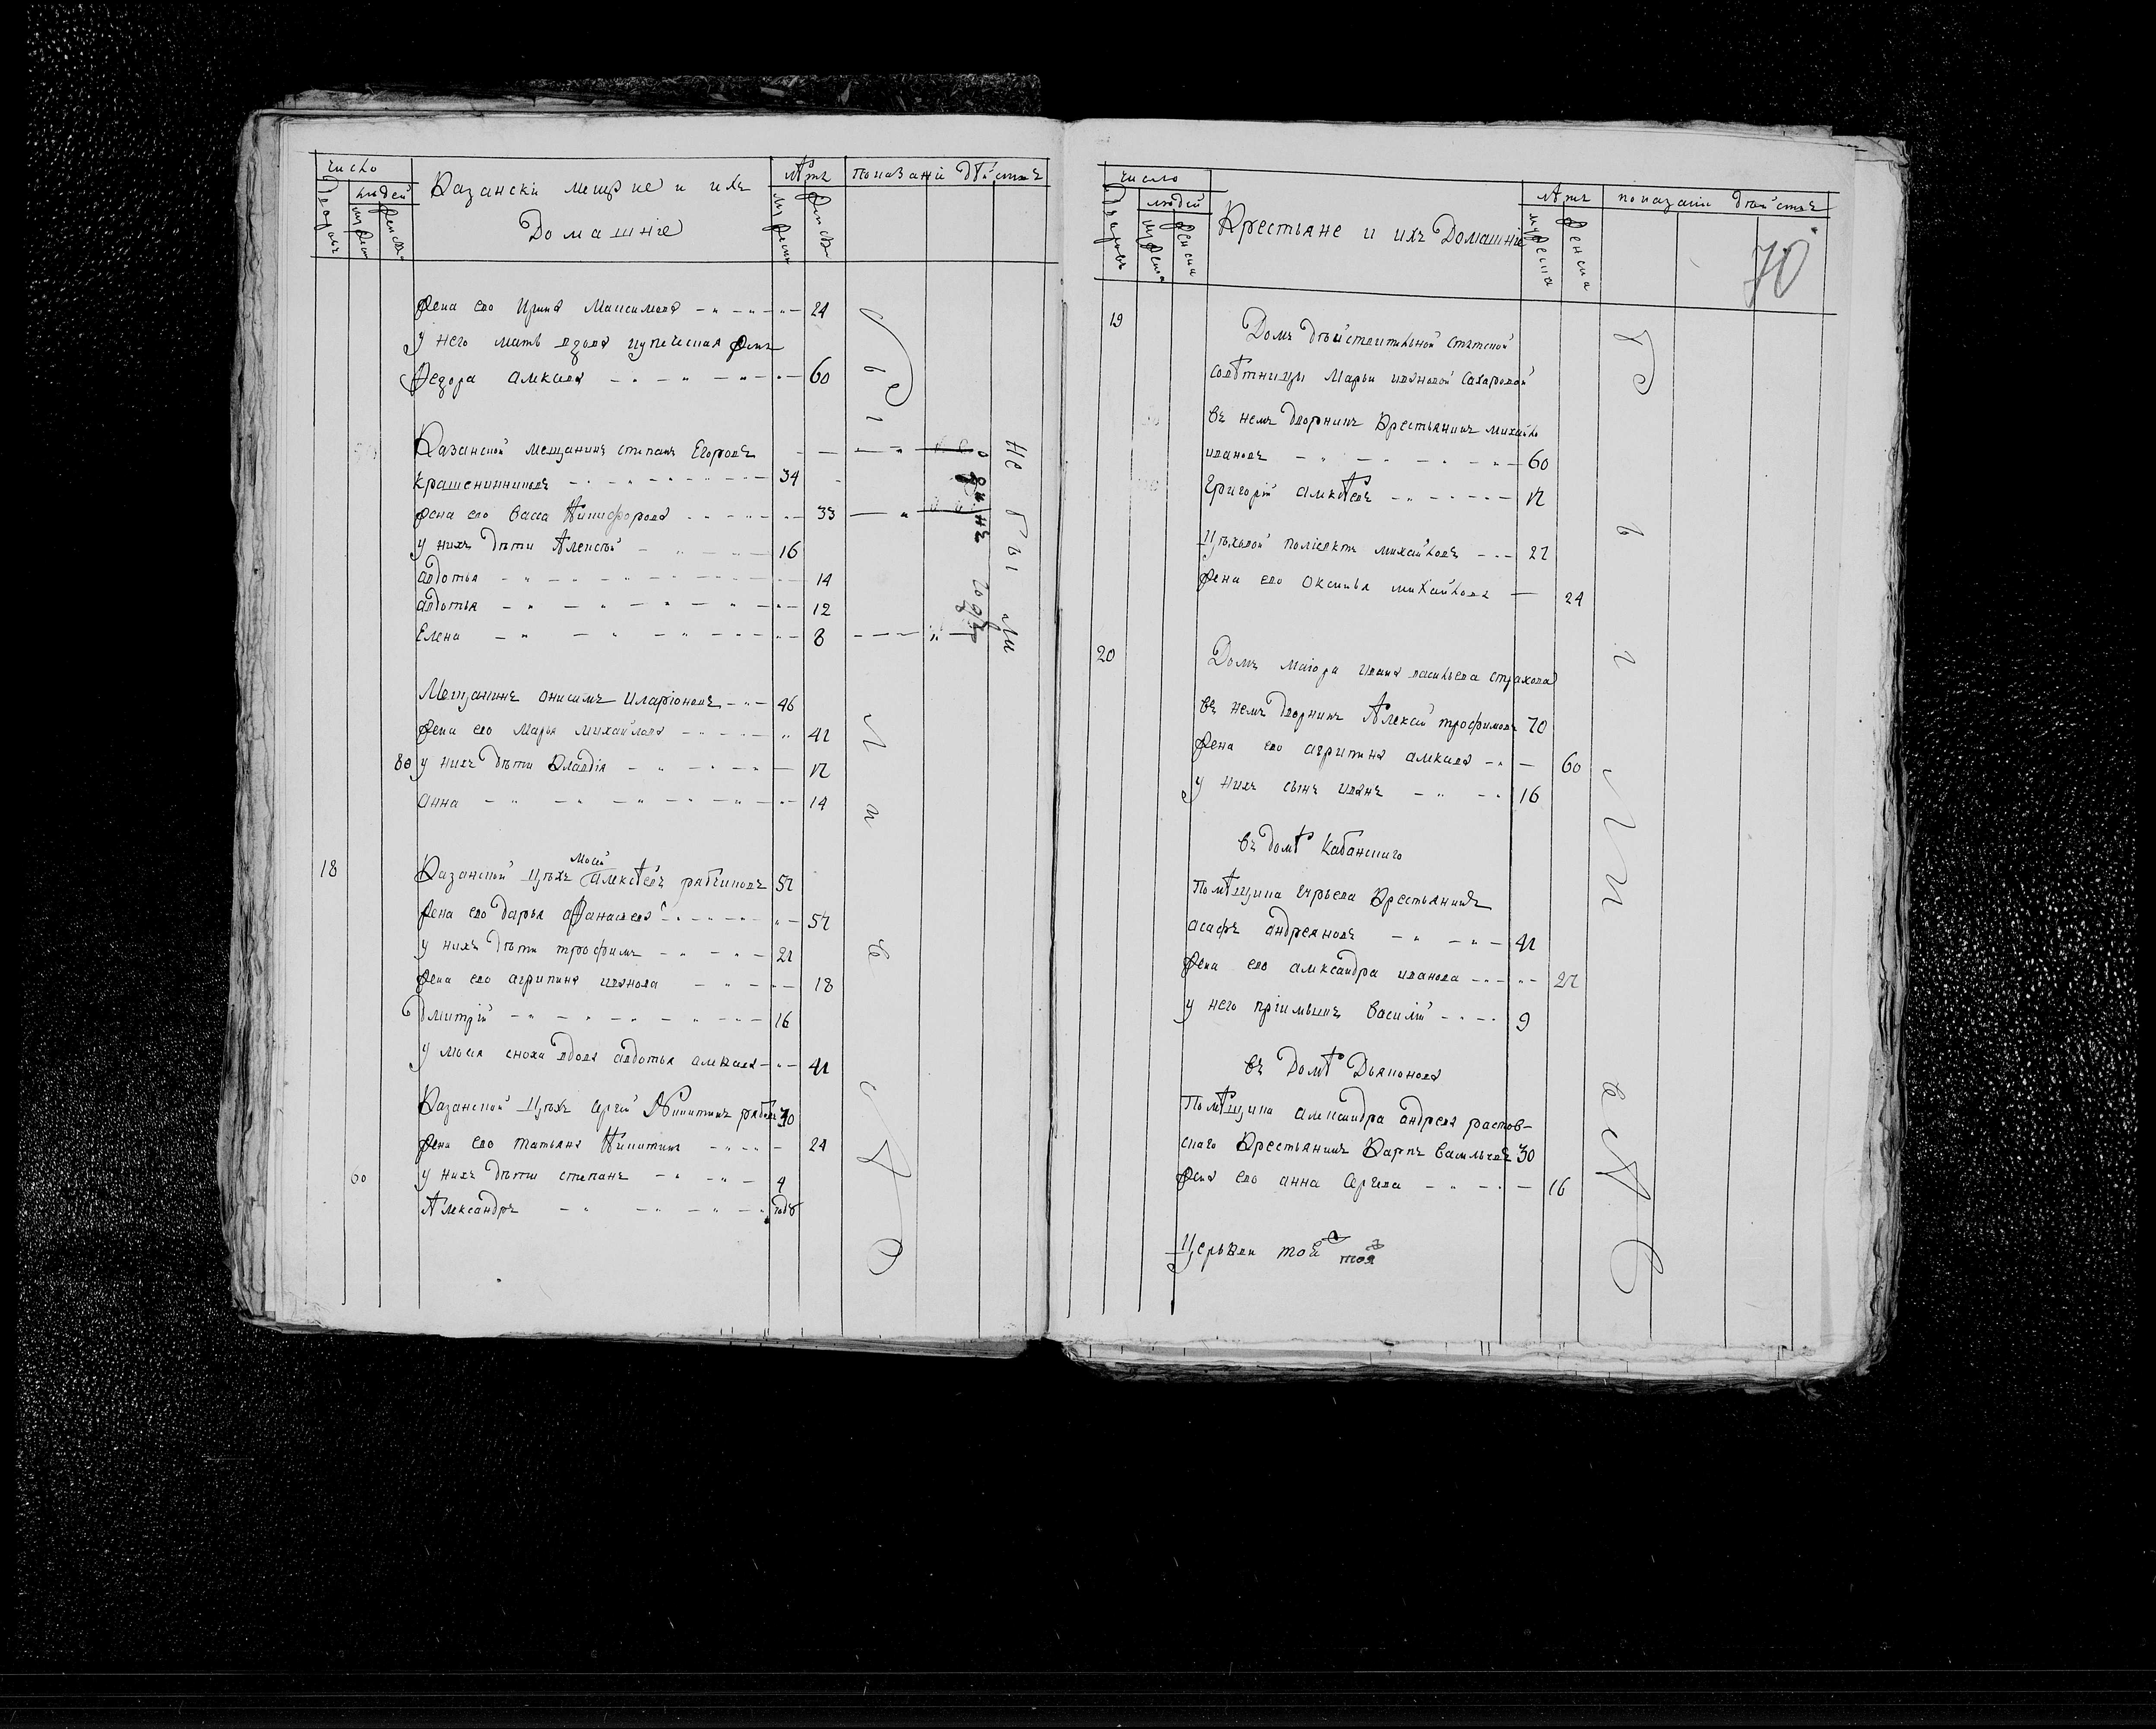 число
людей
Казанскіи мещане и ихъ
Домашніе
Лѣтъ
показаніи дѣйствъ
жена его Ирина Максимова 24
у него мать вдова купеческая жена
Федора алексѣва 60
Казанской мещанинъ степанъ Егоровъ
крашенинниковъ 34
жена его васса Никифорова 33
у нихъ дѣти Алексѣй 16
авдотья 14
авдотья 12
Елена 8
Мещанинъ онисимъ иларіоновъ 46
жена его марья михайлова 42
80 у нихъ дѣти Клавдія 17
анна 14
мосѣй
18 Казанской цѣхъ алексѣевъ рябчиковъ 57
жена его дарья афанасьева 57
у нихъ дѣти трофимъ 21
жена его агрипина иванова 18
Дмитрій 16
у мосѣя сноха вдова авдотья алексѣва 42
Казанской цѣхъ сергѣй Никитинъ 30
жена его татьяна Никитина 24
60 у нихъ дѣти степанъ 4
Александръ годъ
Были
не были
одинъ годъ
число
людей
Крестьяне и ихъ Домашніе
Лѣтъ
мужеска
женска
показаніи дѣйствъ
70
19 Домъ дѣйствительной статской
совѣтницы Марьи ивановой Сахаровой
въ немъ дворникъ Крестьянинъ михайло
ивановъ 60
Григорій алексѣевъ 17
цѣховой поліевктъ михайловъ 27
жена его оксинья михайлова 24
20 Домъ маіора ивана васильева страхова
въ немъ дворникъ Алексѣй трофимовъ 70
жена его агрипина алексѣва 60
у нихъ сынъ иванъ 16
въ домѣ кабанскаго
помѣщика юрьева Крестьянинъ
асафъ андреяновъ 42
жена его александра иванова 27
у него пріимышъ василій 9
въ домѣ Дьяконова
помѣщика александра андреева растов-
скаго Крестьянинъ Карпъ васильевъ 30
жена его анна сергѣва 16
были
Церькви той